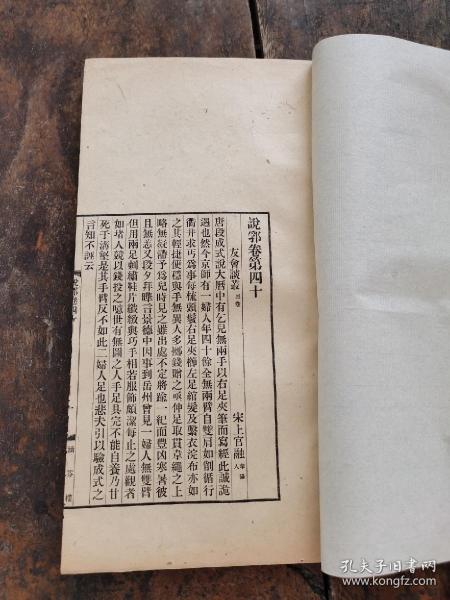 說郛卷第四十
友會談叢 三卷
宋上官融 華陽人
唐段成式說大曆中有乞兒無兩手以右足夾筆而寫經此誠詭
遇也然今京師有一婦人年四十餘全無兩臂自雙肩如削循行
衢井求丐爲事每梳頭髮右足夾櫛左足綰髮及繫衣浣布亦如
之其輕捷便穩與手無異人多擲錢贈之亟伸足取貫韋繩之上
略無礙滯予爲兒時見之雖出處不定將踰一紀而豐凶寒暑彼
且無恙又段夕拜曄言景德中因事到岳州曾見一婦人無雙臂
但用兩足刺繡鞋片纖緻與巧手相若服飾頗潔每止之處觀者
如堵人競以錢投之噫世有無圖之人手足具完不能自養乃甘
死于溝壑是其手臂反不如此二婦人足也悲夫引以驗成式之
言知不誣云
說郛卷四十
涵芬樓
孔夫子旧书网
www.kongfz.com